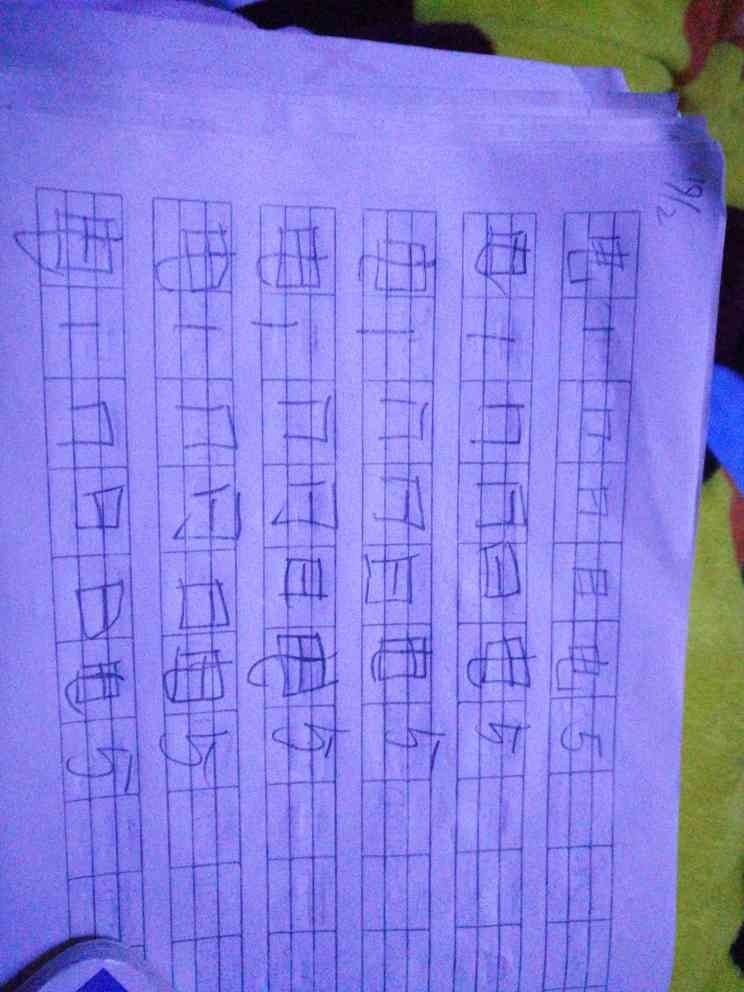 19/2
电 丨 冂 日 电 5
电 丨 冂 日 电 5
电 丨 冂 日 电 5
电 丨 冂 日 电 5
电 丨 冂 日 电 5
电 丨 冂 日 电 5